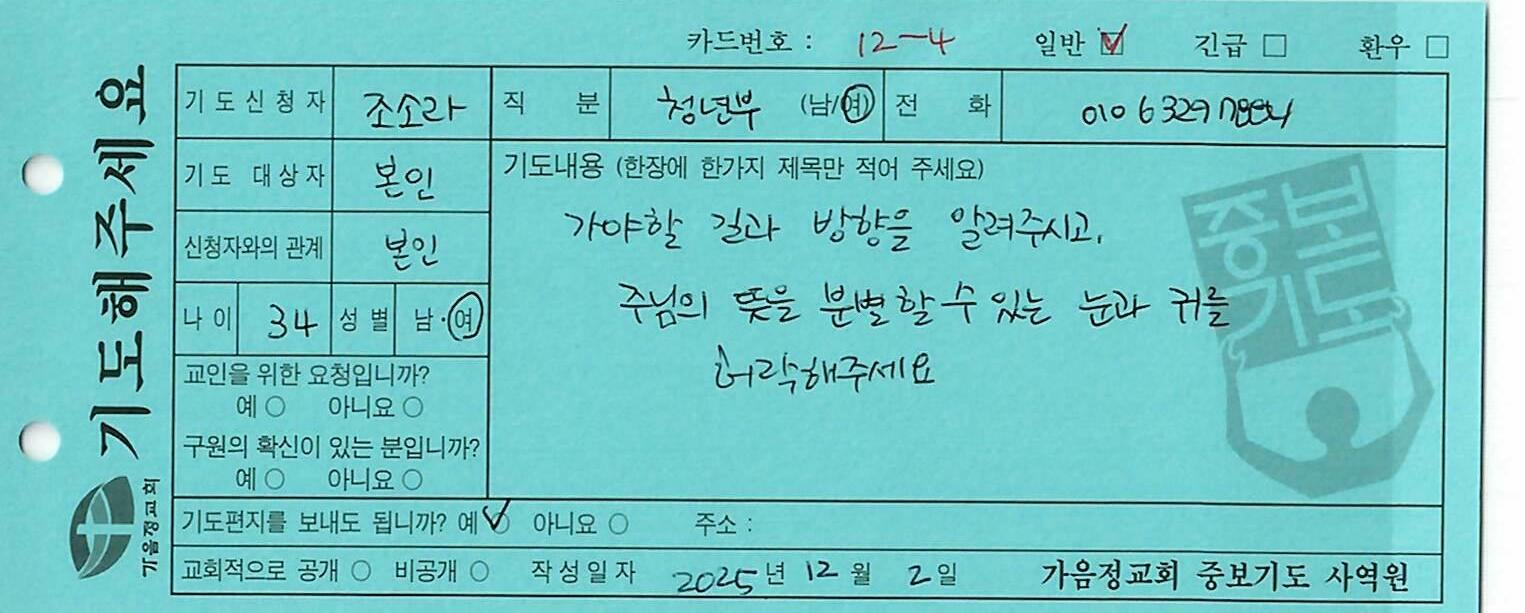 카드번호 : 12-4 일반 ☑ 긴급 □ 환우 □
기도해주세요
가음정교회
기도신청자 조소라 직 분 청년부 (남/여) 전 화 010 6329
기도 대상자 본인
신청자와의 관계 본인
나이 34 성별 남·여
교인을 위한 요청입니까?
예 ○ 아니요 ○
구원의 확신이 있는 분입니까?
예 ○ 아니요 ○
기도내용 (한장에 한가지 제목만 적어 주세요)
가야할 길과 방향을 알려주시고,
주님의 뜻을 분별할 수 있는 눈과 귀를
허락해주세요
중보
기도
기도편지를 보내도 됩니까? 예 ○ 아니요 ○ 주소 :
교회적으로 공개 ○ 비공개 ○ 작성일자 2025년 12월 2일 가음정교회 중보기도 사역원